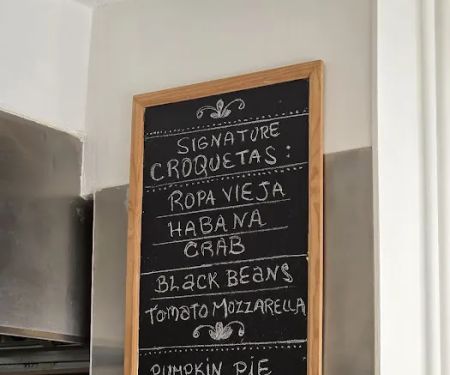 SIGNATURE
CROQUETAS:
ROPA VIEJA
HABANA
CRAB
BLACK BEANS
TOMATO MOZZARELLA
PUMPKIN PIE